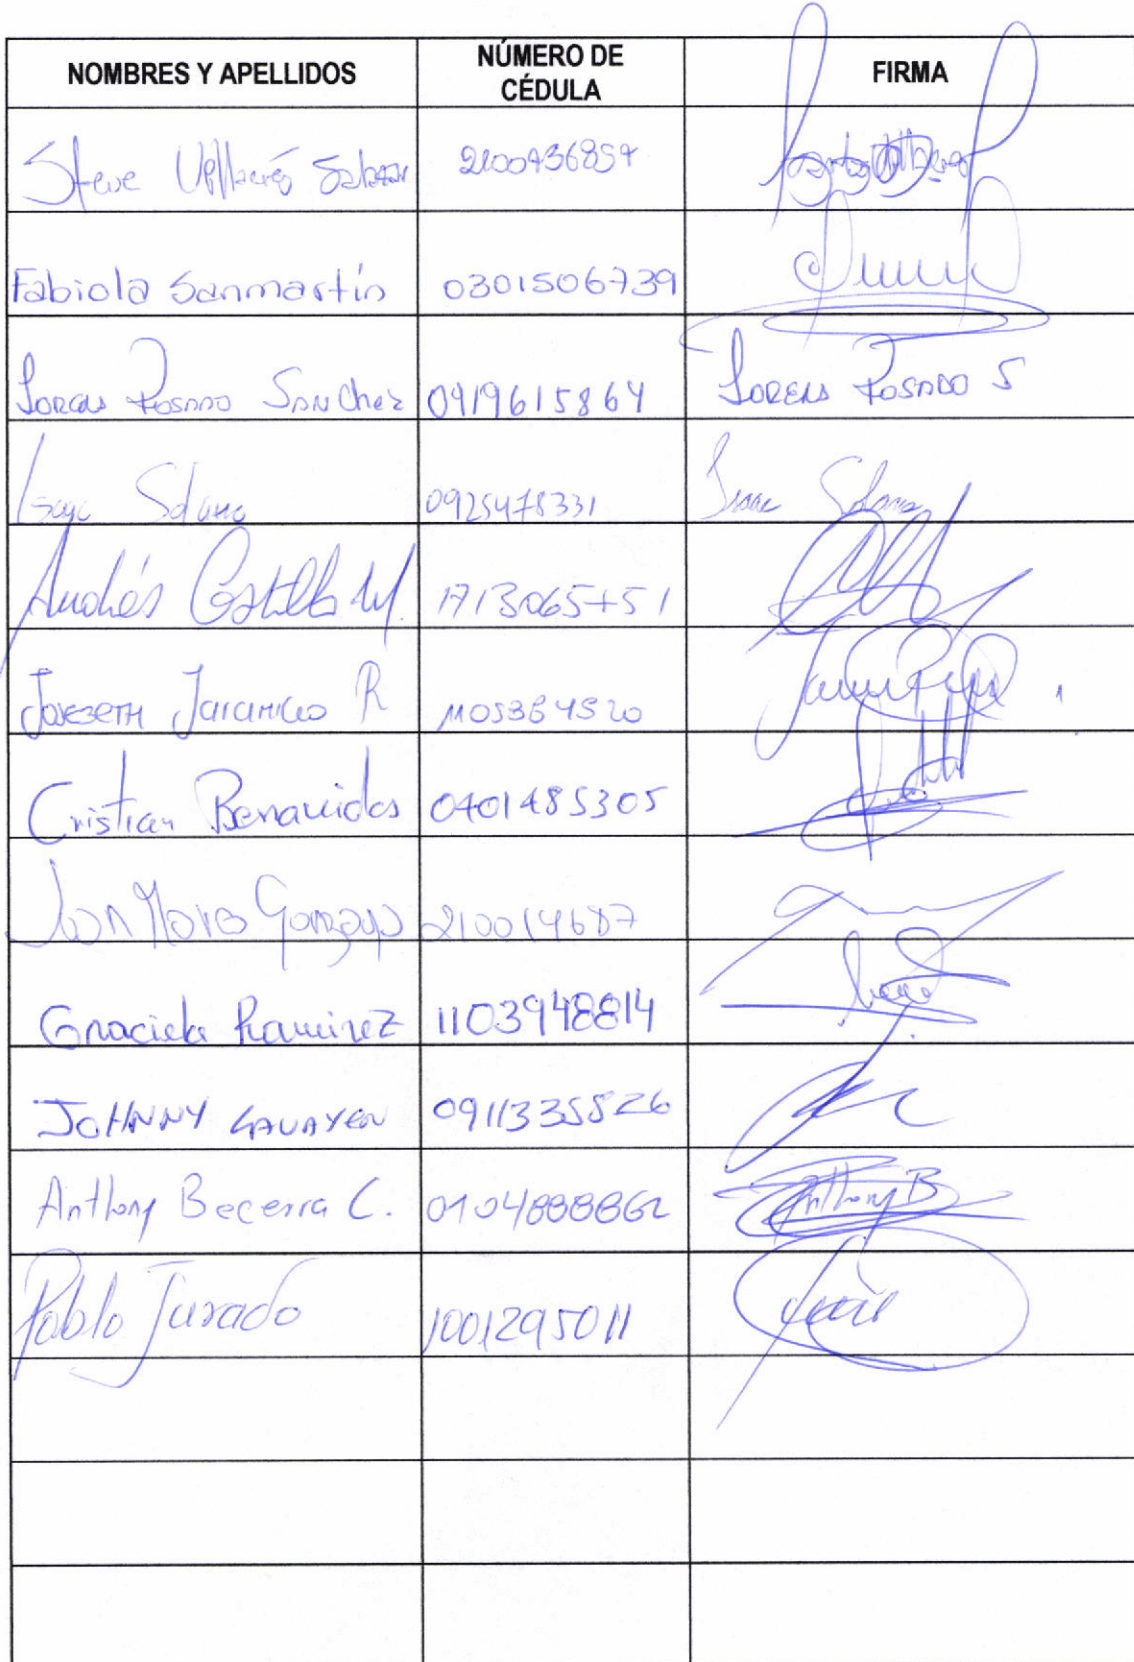 NOMBRES Y APELLIDOS NÚMERO DE CÉDULA FIRMA
Steve 2100436857
Fabiola Sanmartín 0301506739
Rosado Sanchez 0919615864 Rosado S
Isaac Solano 0925478331 Isaac Solano
Andrés Castillo M. 1713065751
Jaramillo R 1105384520
Cristian Benavides 0401485305
Gonzaga 210014687
Graciela Ramirez 1103948814
JOHNNY GAVAYEN 0911335526
Anthony Becerra C. 0104888862 Anthony B
Pablo Jurado 1001295011